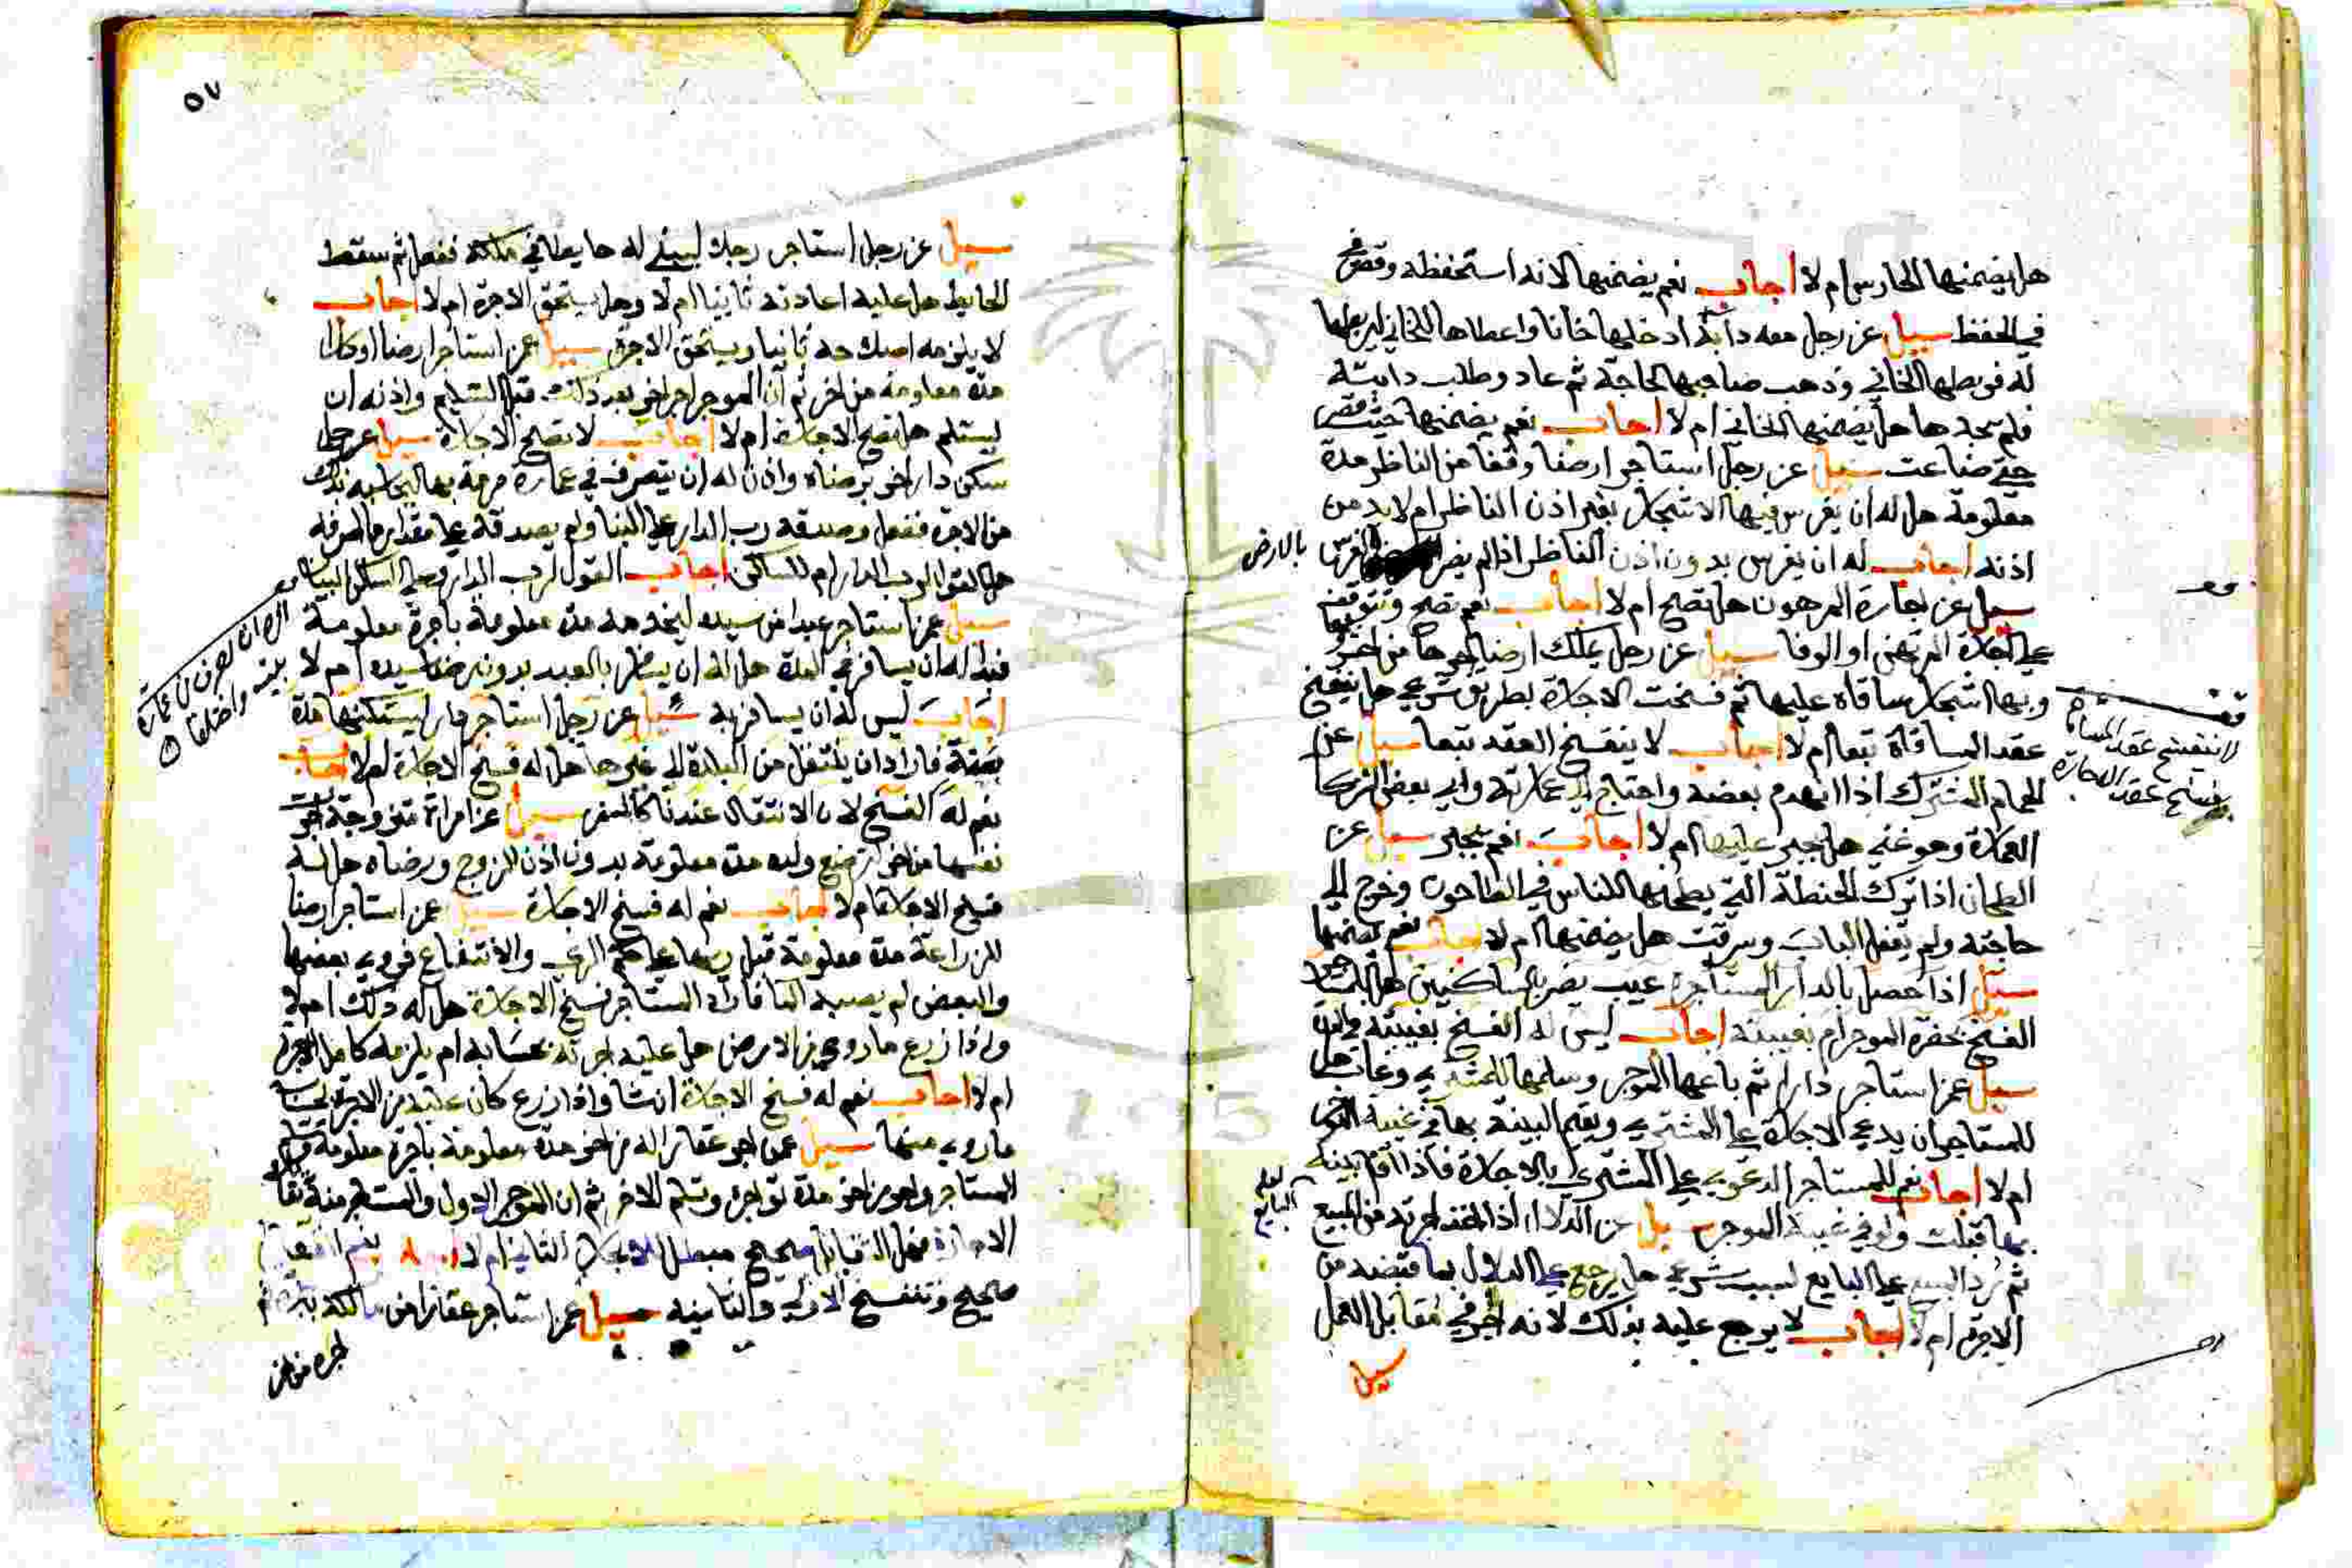 هل يضمنها الحارس ام لا اجاب نعم يضمنها لانه استحفظه وقصر
في الحفظ سيل عن رجل معه دابة ادخلها خانا واعطاها للخاني ليربطها
له فربطها الخاني وذهب صاحبها لحاجة ثم عاد وطلب دابته
فلم يجدها هل يضمنها الخاني ام لا اجاب نعم يضمنها حيث قصر
حتى ضاعت سيل عن رجل استاجر ارضا وقفا من الناظر مدة
معلومة هل له ان يغرس فيها الاشجار بغير اذن الناظر ام لا بد من
اذنه اجاب له ان يغرس بدون اذن الناظر اذا لم يضر الغرس بالارض
سيل عن اجارة المرهون هل تصح ام لا اجاب نعم تصح وتتوقف
على اجازة المرتهن او الوفا سيل عن رجل يملك ارضا اجرها من اخر
وبها اشجار ساقاه عليها ثم فسخت الاجارة بطريق شرعي هل ينفسخ
عقد المساقاة تبعا ام لا اجاب لا ينفسخ العقد تبعا سيل عن
الحمام المشترك اذا انهدم بعضه واحتاج الى عمارته وابى بعض الشركا
العمارة وهو غني هل يجبر عليها ام لا اجاب نعم يجبر سيل عن
الطحان اذا ترك الحنطة التي يطحنها للناس في الطاحون وخرج الى
حاجته ولم يقفل الباب وسرقت هل يضمنها ام لا اجاب نعم يضمنها
سيل اذا حصل بالدار المستاجرة عيب يضر بالساكنين هل للمستاجر
الفسخ بحضرة الموجر ام بغيبته اجاب ليس له الفسخ بغيبته
سيل عمن استاجر دارا ثم باعها الموجر وسلمها للمشتري وغاب هل
للمستاجر ان يدعي الاجارة على المشتري ويقيم البينة بها في غيبة الموجر
ام لا اجاب نعم للمستاجر الدعوى على المشتري بالاجارة فاذا اقام بينة
بها قبلت ولو في غيبة الموجر سيل عن الدلال اذا اخذ اجرته من المبيع
ثم رد المبيع على البايع لسبب شرعي هل يرجع على الدلال بما قبضه من
الاجرة ام لا اجاب لا يرجع عليه بذلك لانه اجر في مقابل العمل
سيل
لا ينفسخ عقد المساقاة
بفسخ عقد الاجارة
البايع
٥٧
سيل عن رجل استاجر رجلا ليبني له حايطا في ملكه ففعل ثم سقط
الحايط هل عليه اعادته ثانيا ام لا وهل يستحق الاجرة ام لا اجاب
لا يلزمه اصلاحه ثانيا ويستحق الاجرة سيل عمن استاجر ارضا او كذا
مدة معلومة من اخر ثم ان الموجر اجر اخر بعد ذلك قبل التسليم واذنه ان
يستلم هل تصح الاجارة ام لا اجاب لا تصح الاجارة سيل عن رجل
سكن دار اخر برضاه واذن له ان يتصرف في عمارة مرمة بها ليحاسبه بذلك
من الاجرة ففعل وصدقه رب الدار على البنا ولم يصدقه على مقدار ما صرفه
هل القول لرب الدار ام للساكن اجاب القول لرب الدار وعلى الساكن البينة
سيل عمن استاجر عبدا من سيده ليخدمه مدة معلومة باجرة معلومة
فبدا له ان يسافر في المدة هل له ان يسافر بالعبد بدون رضا سيده ام لا
اجاب ليس له ان يسافر به سيل عن رجل استاجر دارا ليسكنها مدة
معينة فاراد ان ينتقل من البلدة الى غيرها هل له فسخ الاجارة ام لا اجاب
نعم له الفسخ لان الانتقال عندنا كالسفر سيل عن امراة متزوجة اجرت
نفسها من اخر لترضع ولده مدة معلومة بدون اذن الزوج ورضاه هل له
فسخ الاجارة ام لا اجاب نعم له فسخ الاجارة سيل عمن استاجر ارضا
للزراعة مدة معلومة قبل ريها على حكم الري والانتفاع فروي بعضها
والبعض لم يصبه الما فاراد المستاجر فسخ الاجارة هل له ذلك ام لا
واذا زرع ما روي من الارض هل عليه اجرته بحسابه ام يلزمه كامل الاجرة
ام لا اجاب نعم له فسخ الاجارة ان شا واذا زرع كان عليه من الاجرة بحساب
ما روي منها سيل عمن اجر عقارا له من اخر مدة معلومة باجرة معلومة
المستاجر واجر من اخر مدة تواجره وتسلم الاخر ثم ان الموجر الاول والمستاجر منه تقايلا
الاجارة فهل التقايل صحيح مبطل للاجارة الثانية ام لا اجاب نعم التقايل
صحيح وتنفسخ الاولى والثانية سيل عمن استاجر عقارا من مالكه
اجره من اخر